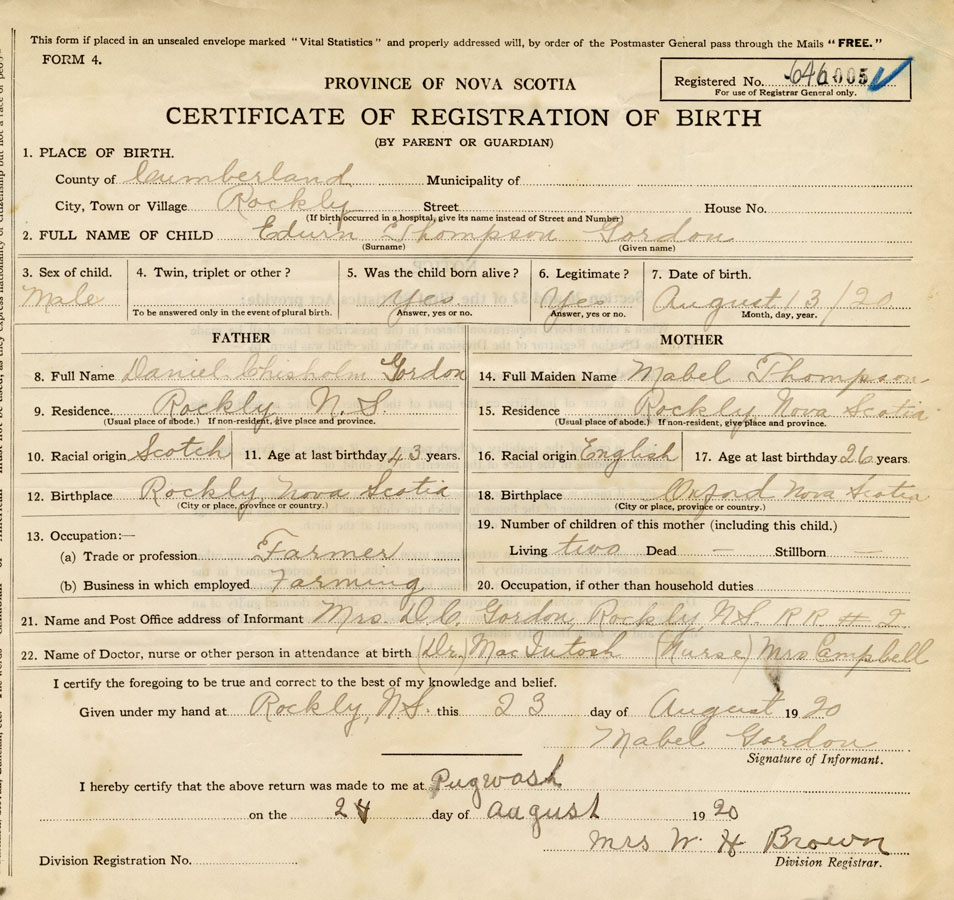 This form if placed in an unsealed envelope marked "Vital Statistics" and properly addressed will, by order of the Postmaster General pass through the Mails "FREE."
FORM 4.
PROVINCE OF NOVA SCOTIA
Registered No. 646005
For use of Registrar General only.
CERTIFICATE OF REGISTRATION OF BIRTH
(BY PARENT OR GUARDIAN)
1. PLACE OF BIRTH.
County of Cumberland Municipality of
City, Town or Village Rockly Street House No.
(If birth occurred in a hospital, give its name instead of Street and Number)
2. FULL NAME OF CHILD Edwin Thompson Gordon
(Surname) (Given name)
3. Sex of child. 4. Twin, triplet or other? 5. Was the child born alive? 6. Legitimate? 7. Date of birth.
Male Yes. Yes August 13/20
To be answered only in the event of plural birth. Answer, yes or no. Answer, yes or no. Month, day, year.
FATHER
8. Full Name Daniel Chisholm Gordon
9. Residence. Rockly N.S.
(Usual place of abode.) If non-resident, give place and province.
10. Racial origin Scotch 11. Age at last birthday 43 years.
12. Birthplace Rockly, Nova Scotia
(City or place, province or country.)
13. Occupation:—
(a) Trade or profession Farmer
(b) Business in which employed Farming
MOTHER
14. Full Maiden Name Mabel Thompson
15. Residence Rockly Nova Scotia
(Usual place of abode.) If non-resident, give place and province.
16. Racial origin English 17. Age at last birthday 26 years.
18. Birthplace Oxford Nova Scotia
(City or place, province or country.)
19. Number of children of this mother (including this child.)
Living two Dead — Stillborn —
20. Occupation, if other than household duties
21. Name and Post Office address of Informant Mrs. D.C. Gordon, Rockly, N.S. R R # 2.
22. Name of Doctor, nurse or other person in attendance at birth (Dr.) MacIntosh (Nurse) Mrs Campbell
I certify the foregoing to be true and correct to the best of my knowledge and belief.
Given under my hand at Rockly, N.S. this 23 day of August 1920
Mabel Gordon
Signature of Informant.
I hereby certify that the above return was made to me at Pugwash
on the 24 day of august 1920
Mrs W H Brown
Division Registrar.
Division Registration No.